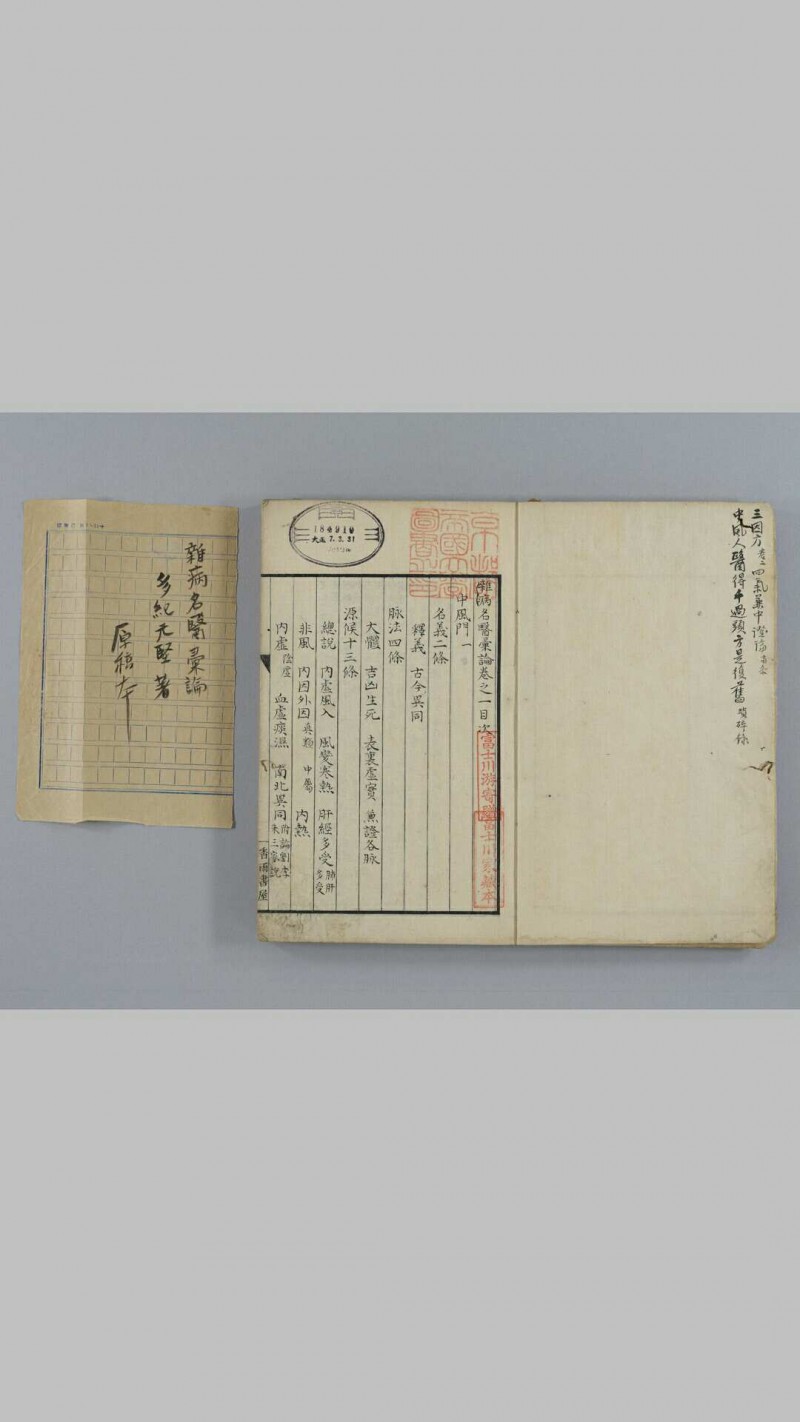 三因方卷二四氣兼中證論
中風人醫得十過頭方是復舊
雜病名醫彙論卷之一目次
中風門一
名義二條
釋義 古今異同
脉法四條
大體 吉凶生死 表裏虛實 兼證各脉
源候十三條
總說 內虛風入 風變寒熱 肝經多受
非風 內因外因真類 中屬 內熱
內虛陰虛 血虛痰濕 南北異同
富士川游寄贈
富士川家藏本
184910
大正7.3.31
雜病名醫彙論
多紀元堅著
原稿本